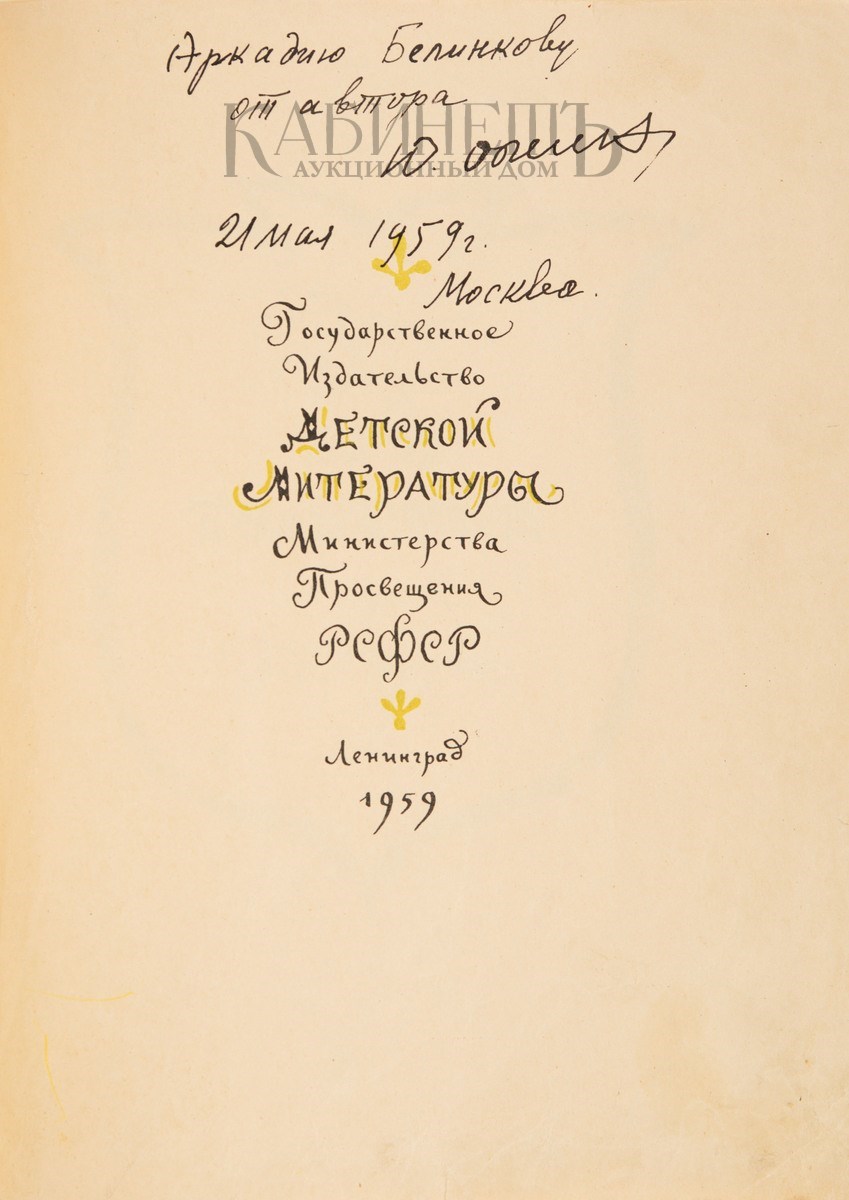 Аркадию Белинкову
от автора
КАБИНЕТЪ
АУКЦИОННЫЙ ДОМ
Ю. Олеша
21 мая 1959 г.
Москва.
Государственное
Издательство
ДЕТСКОЙ
ЛИТЕРАТУРЫ
Министерства
Просвещения
РСФСР
Ленинград
1959